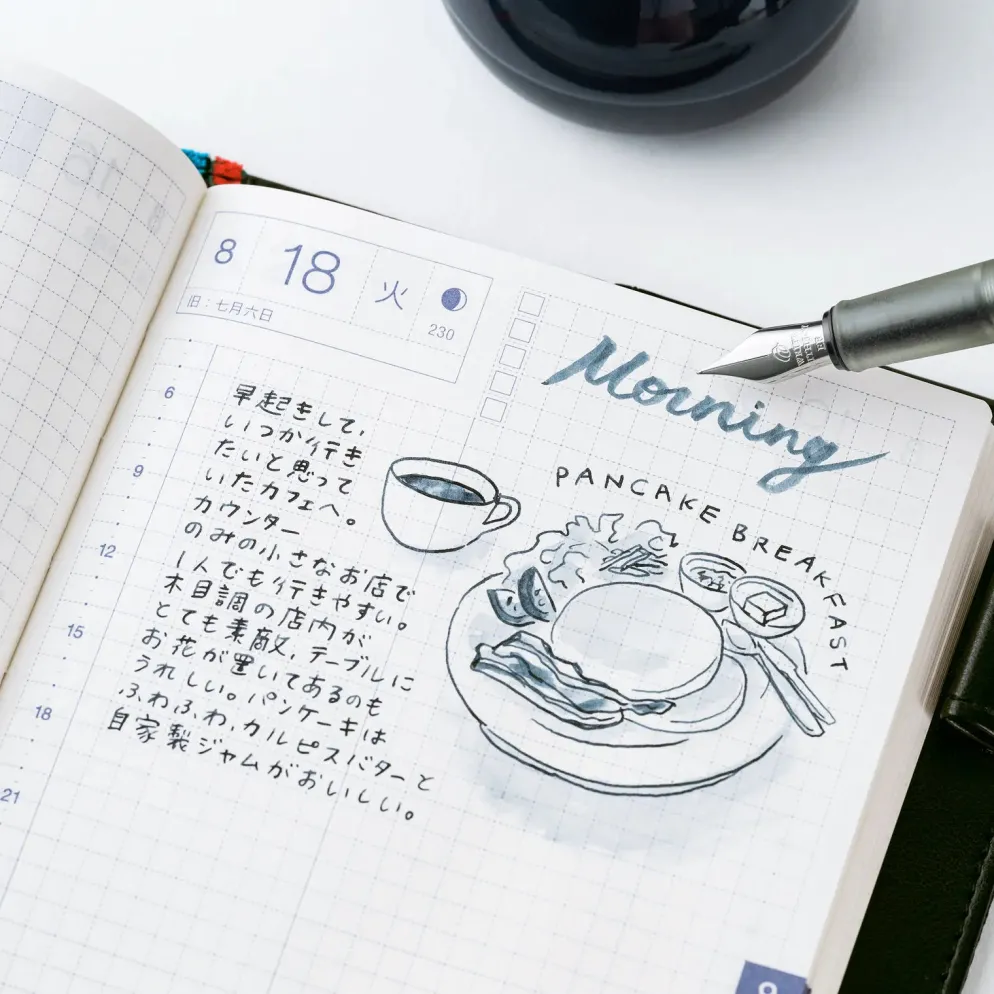 8 18 火
230
旧:七月六日
Morning
PANCAKE BREAKFAST
6
9
12
15
18
21
早起きして、
いつか行き
たいと思って
いたカフェへ。
カウンター
のみの小さなお店で
1人でも行きやすい。
木目調の店内が
とても素敵、テーブルに
お花が置いてあるのも
うれしい。パンケーキは
ふわふわ、カルピスバターと
自家製ジャムがおいしい。